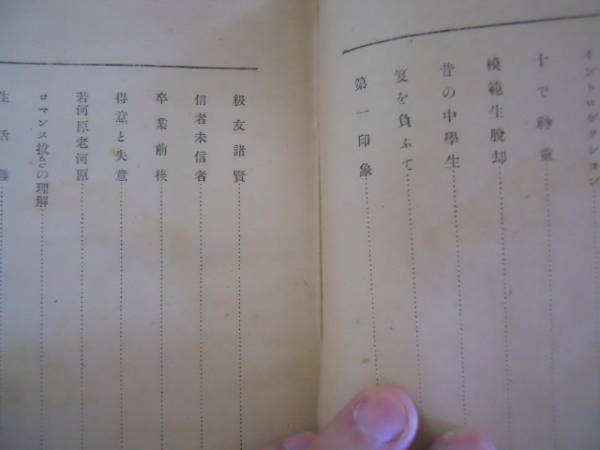 イントロダクション
十で神童
模範生脱却
昔の中學生
笈を負ふて
第一印象
級友諸賢
信者未信者
卒業前後
得意と失意
若河原老河原
ロマンス拔きの理解
生活